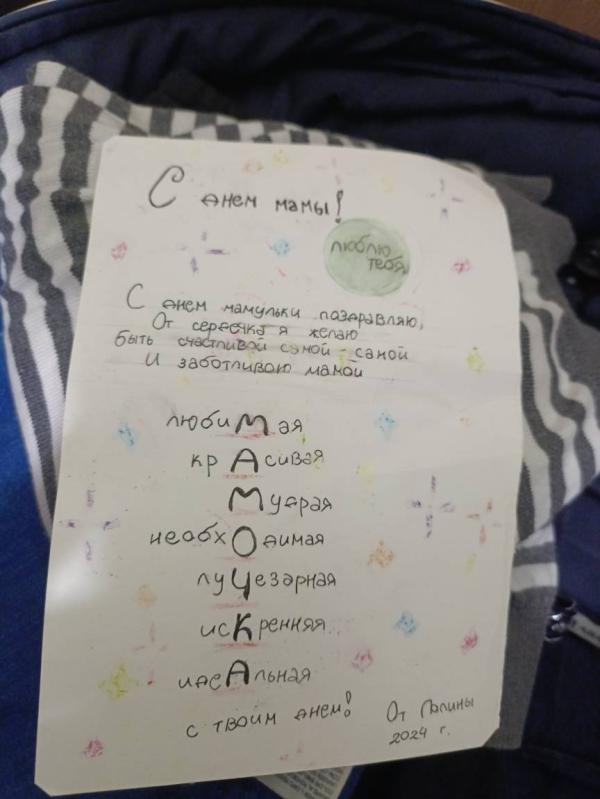 С днем мамы!
люблю
тебя.
С днем мамульки поздравляю,
От сердечка я желаю
быть счастливой самой - самой
И заботливою мамой
любиМая
крАсивая
Мудрая
необхОдимая
луЧезарная
исКренняя
идеАльная
с твоим днем!
От Полины
2024 г.